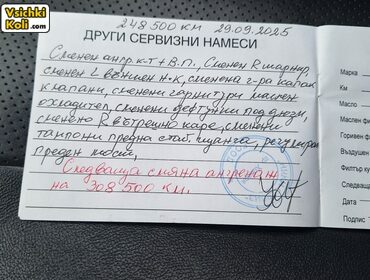 Vsichki
Koli.com
248 500 км 29.09.2025
ДРУГИ СЕРВИЗНИ НАМЕСИ
Сменен ангр. к-т + В.П., Сменен R шарнир,
сменен L външен н-к, сменена г-ра капак
клапани, сменени гарнитури маслен
охладител, сменени дюзи,
сменено R вътрешно каре, сменени
тампони предна стаб. щанга, регулиран
преден мост,
Следваща смяна ангренаж
на 308 500 км.
Марка
Км
Масло
Маслен фи
Горивен ф
Въздушен
Филтър к
Следваща
Дата
Подпис